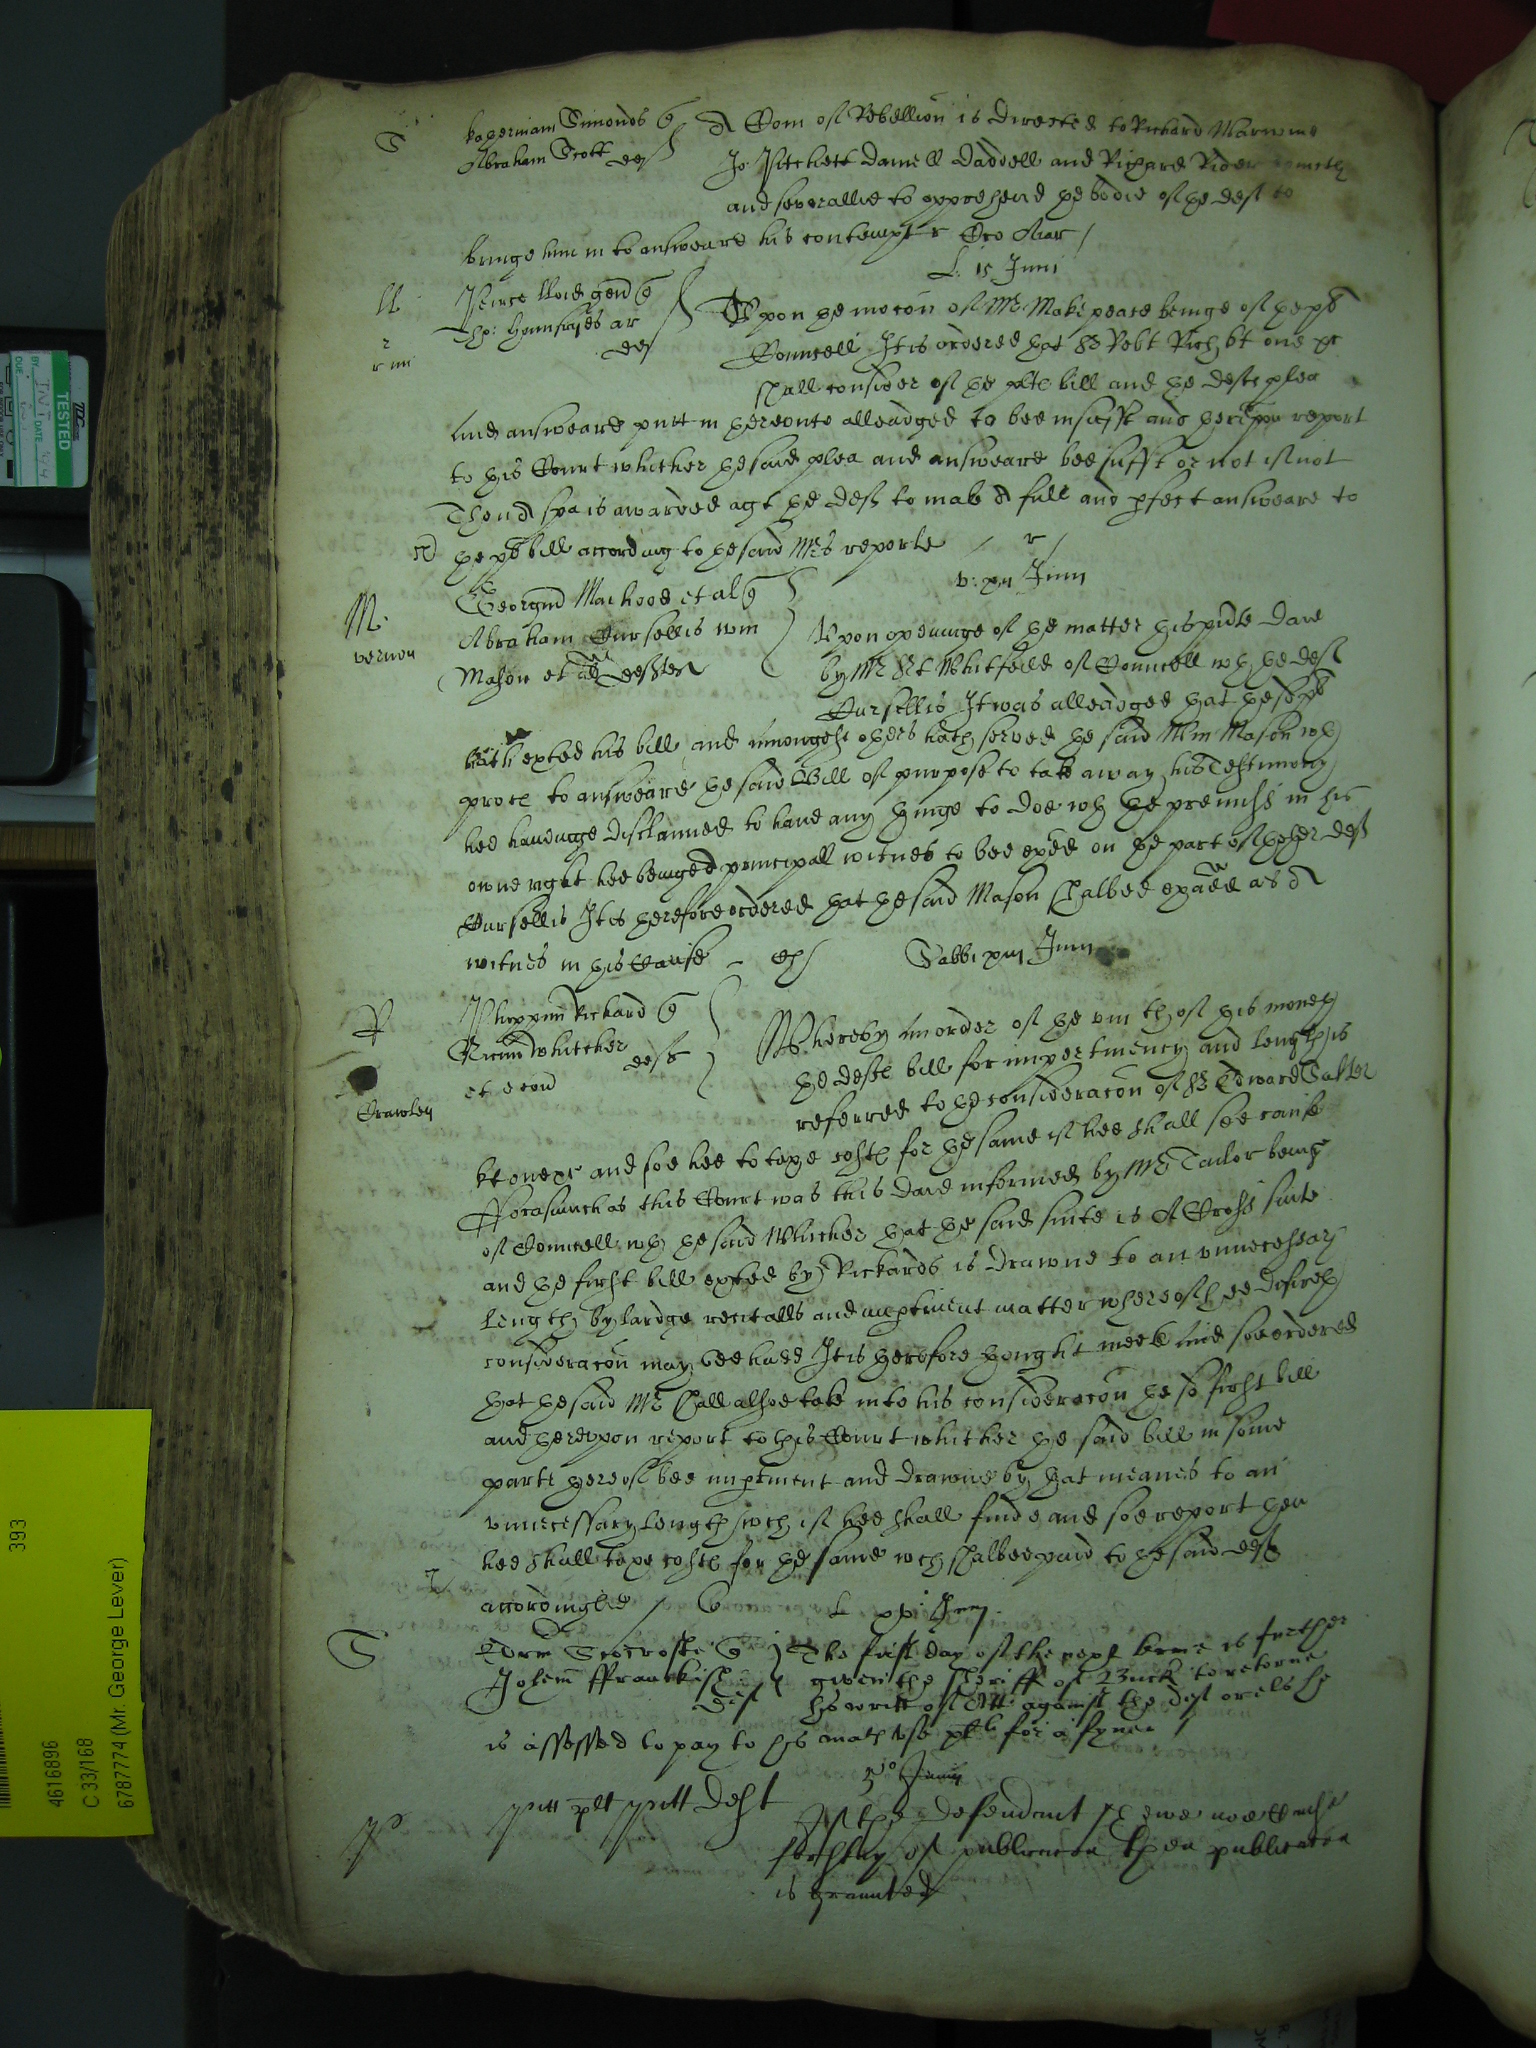 S
Abraham Simonds q
Abraham Scott def
A Com of Rebellion is directed to Richard Marwine
Jo: Pitchett Daniell Daddell and Richard Rider
and severallie to apprehend the bodie of the deft to
bringe him in to answeare his contempt r
L. 15 Junii
ll
Peirce lloid gen q
ar def
Upon the mocon of Mr Makepeace beinge of the plts
Councell It is ordered that Sr Robt Rich kt one &c
shall consider of the plts bill and the defts plea
and answeare putt in thereunto alleadged to bee insufft and thereupon report
to this Court whether the said plea and answeare bee sufft or not if not
Then A spa is awarded agt the deft to make A full and pfect answeare to
the plts bill according to the said Mrs reporte / r /
v: xii Junii
M.
vernon
Georgiu Machood et al q
Abraham Cursellis wm
Mason et al deftes
Upon openinge of the matter this pnte daie
by Mr Whitfeild of Councell wth the deft
Cursellis It was alleadged that the sd plt
hath exhted his bill and amongest others hath served the said Wm Mason wth
proces to answeare the said Bill of purpose to take away his Testimony
hee havinge disclaimed to have any thinge to doe wth the premisses in his
owne right hee beinge A principall witnes to bee exed on the part of the other deft
Cursellis It is therefore ordered that the said Mason shalbee exaied as A
witnes in this Cause
Sabbi xiii Junii
R
Crawley
Phippum Rickard q
Ricum Whitcher
et e con defts
Whereby an order of the viii th of this moneth
the defts bill for impertinency and length is
referred to the consideracon of Sr Edward Salter
kt one &c and soe hee to taxe costs for the same if hee shall see cause
Forasmuch as this Court was this daie informed by Mr Tailor beinge
of Councell wth the said Whitcher that the said suite is A Crosse suite
and the first bill exhted by Rickards is drawne to an unnecessary
length by lardge recitalls and impertinent matter whereof hee desireth
consideracon may bee hadd It is therefore thought meete and soe ordered
that the said Mr shall alsoe take into his consideracon the sd first bill
and thereupon report to this Court whether the said bill in some
parte thereof bee impertinent and drawne by that meanes to an
unnecessary length wch if hee shall finde and soe report then
hee shall taxe costs for the same wch shalbee paid to the said deft
accordinglie /
L xv: Junii
S
Edrm q
Johem ffranckish deft
The first day of the next terme is further
given the sheriff of Buck to retorne
his writt of Att against the deft or els he
is assessed to pay to his maties use for a fyne /
P
Pitt plt Pitt deft
Junii
If the defendant shewe noe cause
for stay of publicacon then publicacon
is graunted
TESTED
BY
DATE
DUE
393
4616896
C 33/168
6787774 (Mr. George Lever)